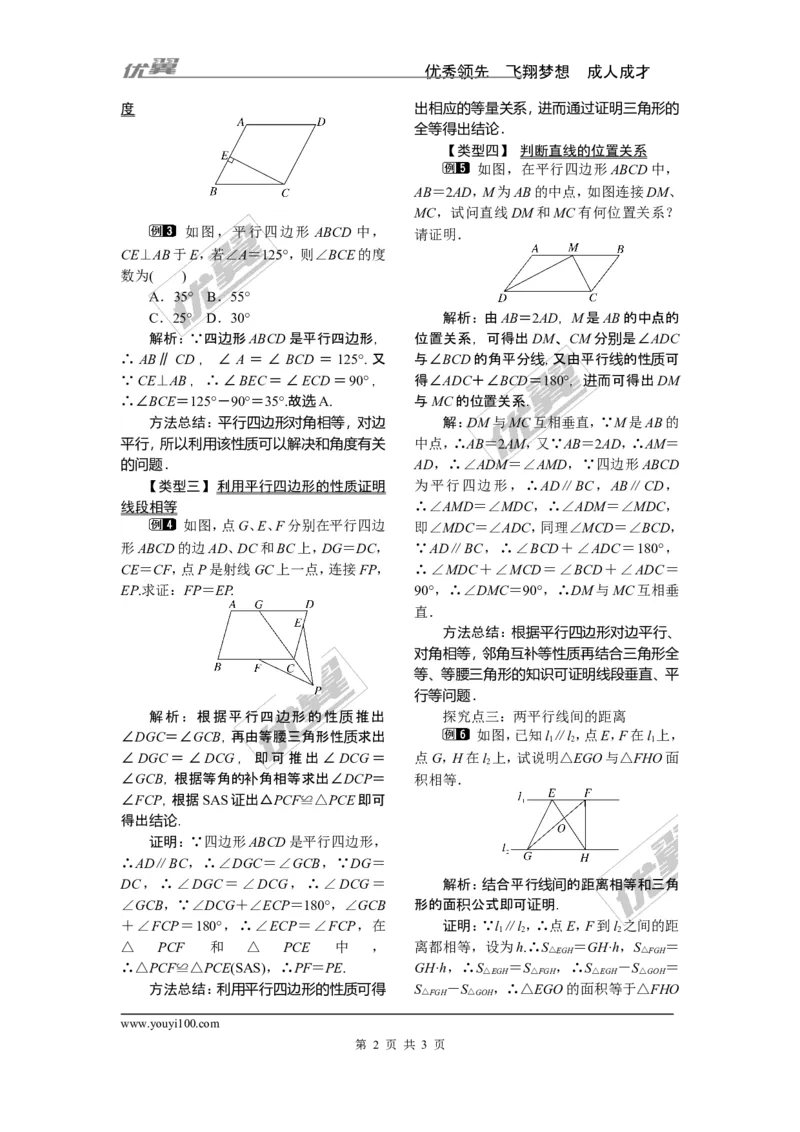 优翼
优秀领先 飞翔梦想 成人成才
度
A D
E
B C
例3 如图，平行四边形 ABCD 中，
CE⊥AB于E，若∠A＝125°，则∠BCE的度
数为( )
A．35° B．55°
C．25° D．30°
解析：∵四边形ABCD是平行四边形，
∴ AB∥ CD ， ∠ A ＝ ∠ BCD ＝ 125°. 又
∵ CE⊥AB，∴∠BEC＝∠ECD＝90°，
∴∠BCE＝125°－90°＝35°.故选A.
方法总结：平行四边形对角相等，对边
平行，所以利用该性质可以解决和角度有关
的问题．
【类型三】 利用平行四边形的性质证明
线段相等
例4 如图，点G、E、F分别在平行四边
形ABCD的边AD、DC和BC上，DG＝DC，
CE＝CF，点P是射线GC上一点，连接FP，
EP.求证：FP＝EP.
A G D
E
B F C
P
解析：根据平行四边形的性质推出
∠DGC＝∠GCB，再由等腰三角形性质求出
∠ DGC ＝ ∠ DCG ， 即可推出 ∠ DCG ＝
∠GCB，根据等角的补角相等求出∠DCP＝
∠FCP，根据SAS证出△PCF≌△PCE即可
得出结论.
证明：∵四边形ABCD是平行四边形，
∴AD∥BC，∴∠DGC＝∠GCB，∵DG＝
DC，∴∠DGC＝∠DCG，∴∠DCG＝
∠GCB，∵∠DCG＋∠ECP＝180°，∠GCB
＋∠FCP＝180°，∴∠ECP＝∠FCP，在
△ PCF 和 △ PCE 中 ，
∴△PCF≌△PCE(SAS)，∴PF＝PE.
方法总结：利用平行四边形的性质可得
出相应的等量关系，进而通过证明三角形的
全等得出结论．
【类型四】 判断直线的位置关系
例5 如图，在平行四边形ABCD中，
AB＝2AD，M为AB的中点，如图连接DM、
MC，试问直线DM和MC有何位置关系？
请证明．
A M B
D C
解析：由AB＝2AD，M是AB的中点的
位置关系，可得出DM、CM分别是∠ADC
与∠BCD的角平分线，又由平行线的性质可
得∠ADC＋∠BCD＝180°，进而可得出DM
与MC的位置关系.
解：DM与MC互相垂直，∵M是AB的
中点，∴AB＝2AM，又∵AB＝2AD，∴AM＝
AD，∴∠ADM＝∠AMD，∵四边形ABCD
为平行四边形，∴AD∥BC，AB∥CD，
∴∠AMD＝∠MDC，∴∠ADM＝∠MDC，
即∠MDC＝∠ADC，同理∠MCD＝∠BCD，
∵AD∥BC，∴∠BCD＋∠ADC＝180°，
∴∠MDC＋∠MCD＝∠BCD＋∠ADC＝
90°，∴∠DMC＝90°，∴DM与MC互相垂
直．
方法总结：根据平行四边形对边平行、
对角相等，邻角互补等性质再结合三角形全
等、等腰三角形的知识可证明线段垂直、平
行等问题．
探究点三：两平行线间的距离
例6 如图，已知l₁∥l₂，点E，F在l₁上，
点G，H在l₂上，试说明△EGO与△FHO面
积相等．
l₁ E F
O
l₂ G H
解析：结合平行线间的距离相等和三角
形的面积公式即可证明.
证明：∵l₁∥l₂，∴点E，F到l₂之间的距
离都相等，设为h.∴S△EGH＝GH·h，S△FGH＝
GH·h，∴S△EGH＝S△FGH，∴S△EGH－S△GOH＝
S△FGH－S△GOH，∴△EGO的面积等于△FHO
www.youyi100.com
第 2 页 共 3 页